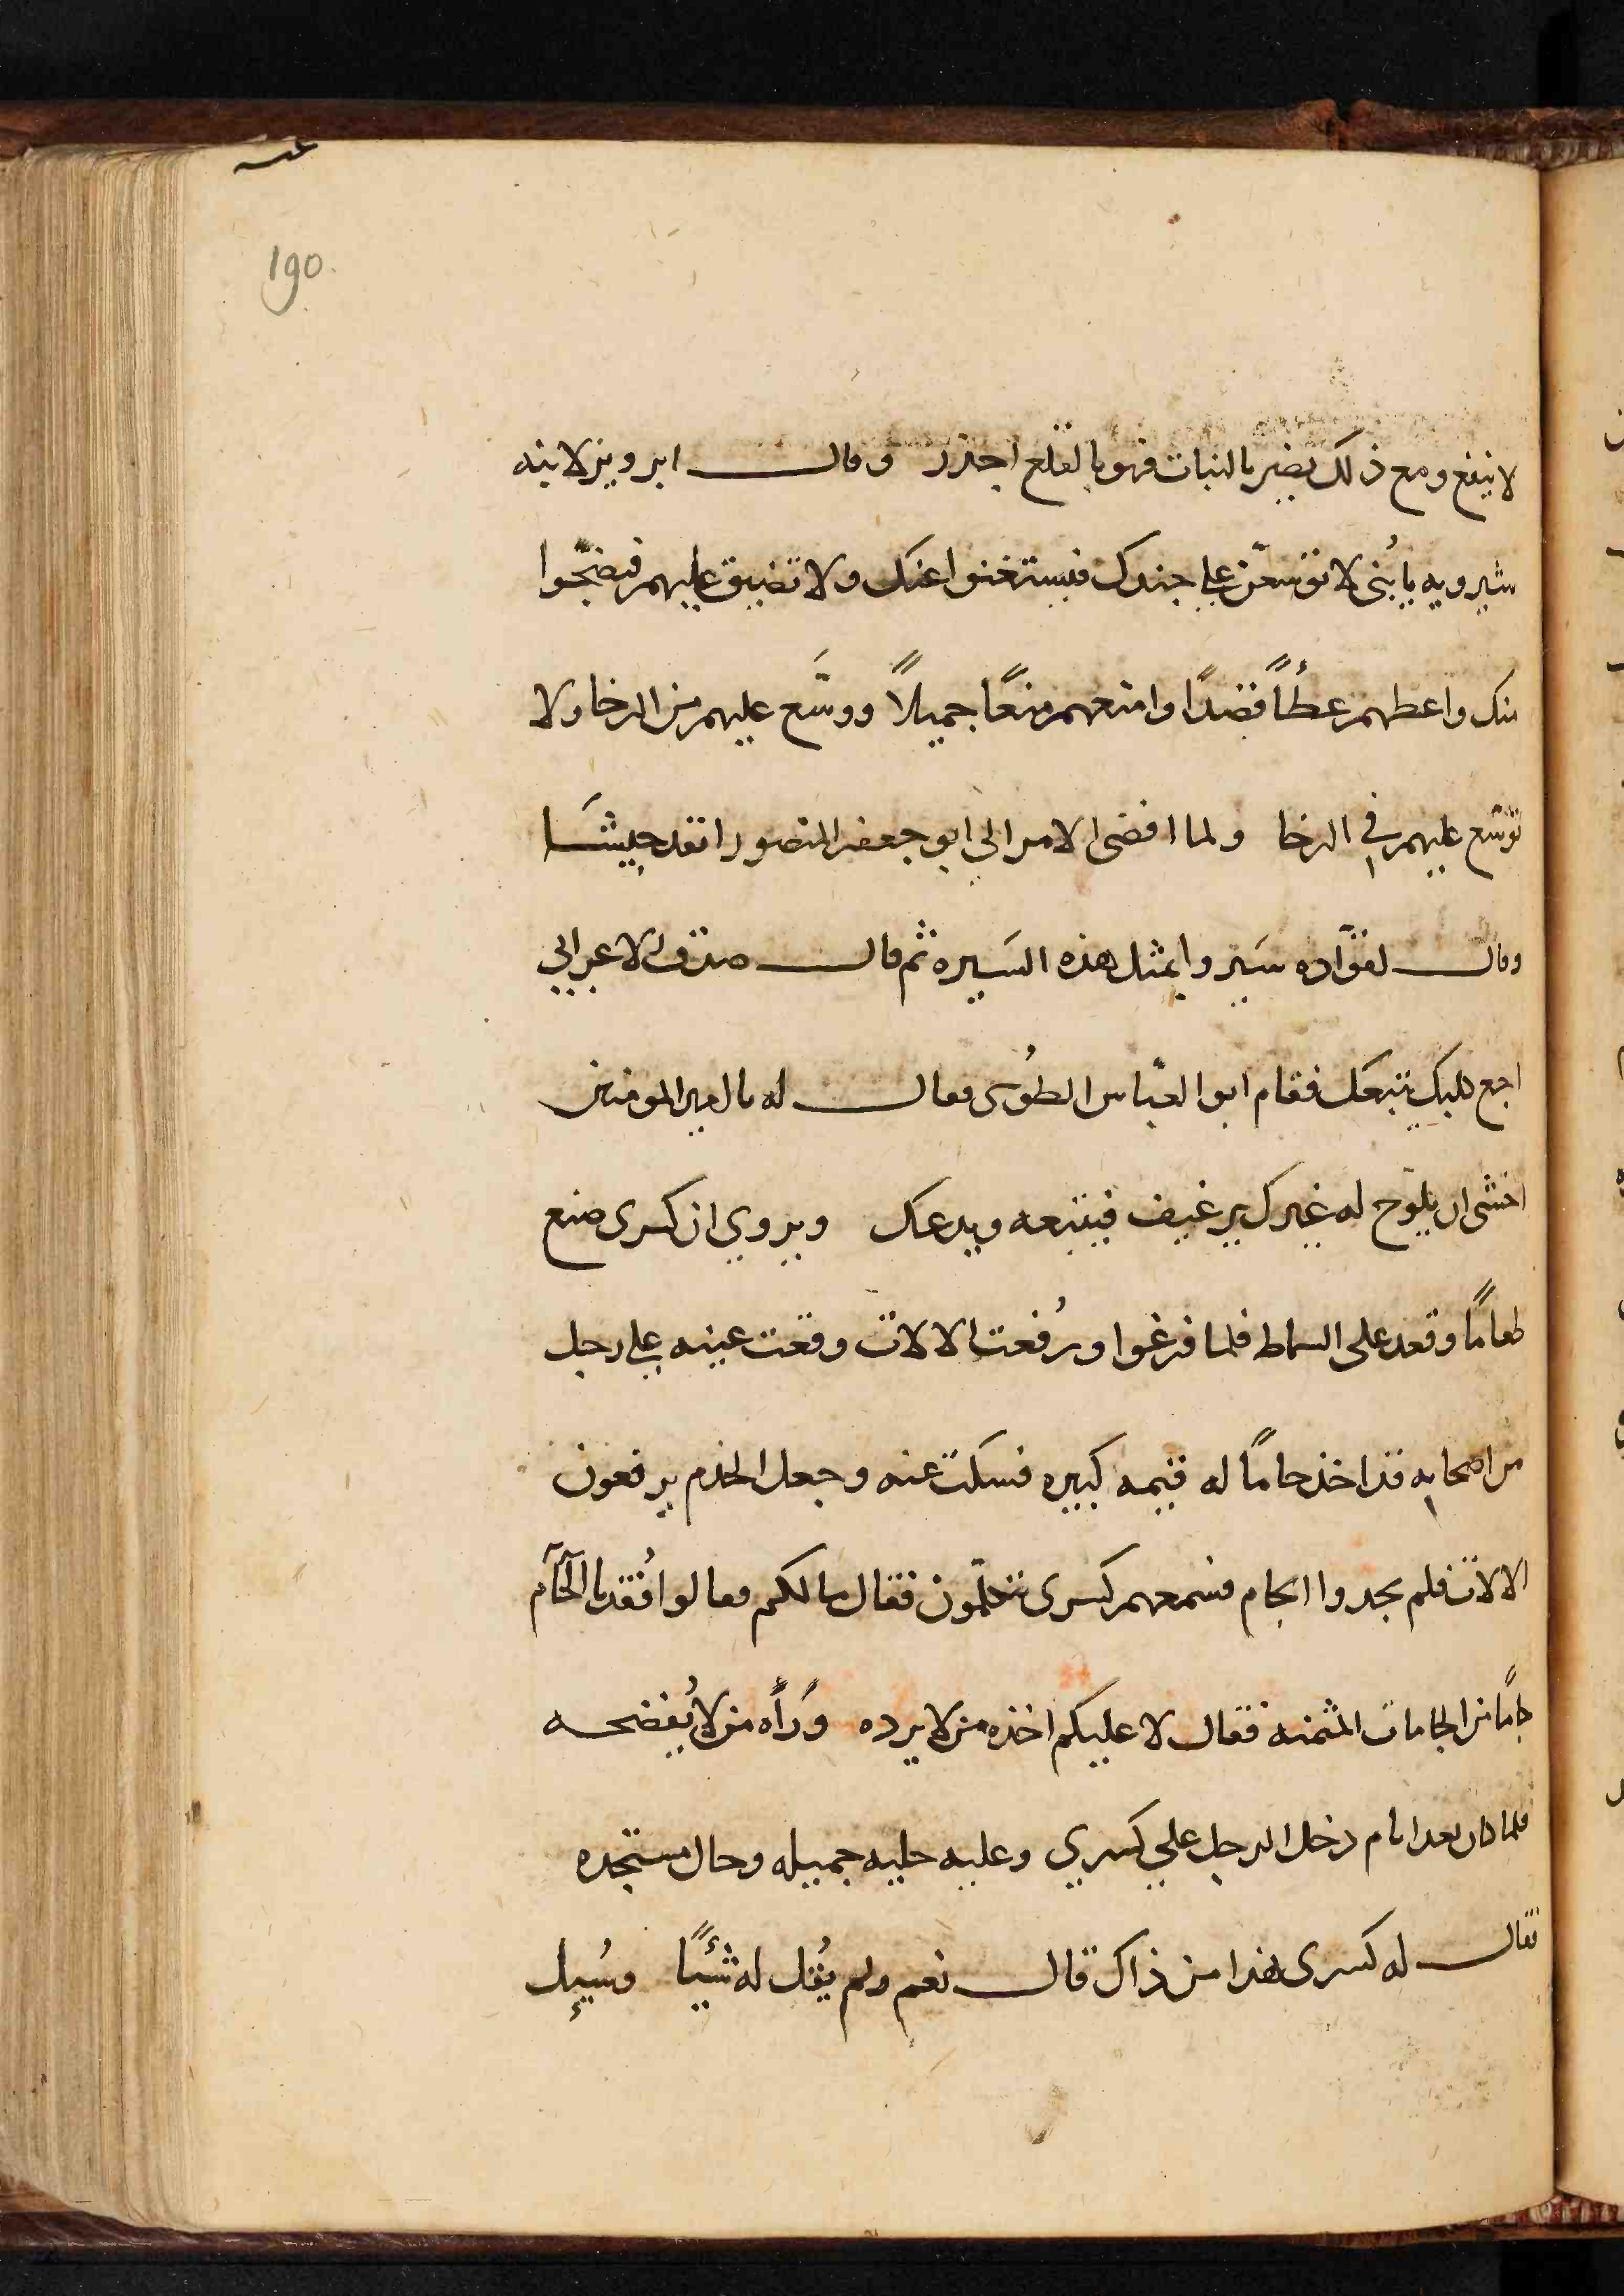 190
لا ينفع ومع ذلك يضر بالنبات فهو بالقلع اجدر وقال ابرويز لابنه
شيرويه يا بُنى لا توسّعن على جندك فيستغنوا عنك ولا تضيق عليهم فيضجّوا
منك واعطهم عطأً قصدًا وامنعهم منعًا جميلاً ووسَّع عليهم من الرخا ولا
توسّع عليهم في الرخا ولما افضى الامر الي ابو جعفر المنصور انفد جيشًا
وقال لقوّاده سَيروا بمثل هذه السَيره ثم قال صدق الاعرابي
اجع كلبك يتبعك فقام ابو العبّاس الطُوسى فقال له يا امير المومنين
اخشى ان يلوّح له غيرك برغيف فيتبعه ويدعك ويروي ان كسرى صنع
طعامًا وقعد على السماط فلما فرغوا ورُفعت الالات وقعت عينه على رجل
من اصحابه قد اخذ جامًا له قيمه كبيره فسكت عنه وجعل الخدم يرفعون
الالات فلم يجدوا الجام فسمعهم كسرى يتكلمون فقال ما لكم فقالوا فُقد يا الجام
جامًا من الجامات المثمنه فقال لا عليكم اخذه من لا يرده ورَأه من لا يُفضحه
فلما كان بعد ايام دخل الرجل على كسري وعليه حليه جميله وحال مستجده
فقال له كسرى هذا من ذاك قال نعم ولم يقُل له شيئًا وسُيِل